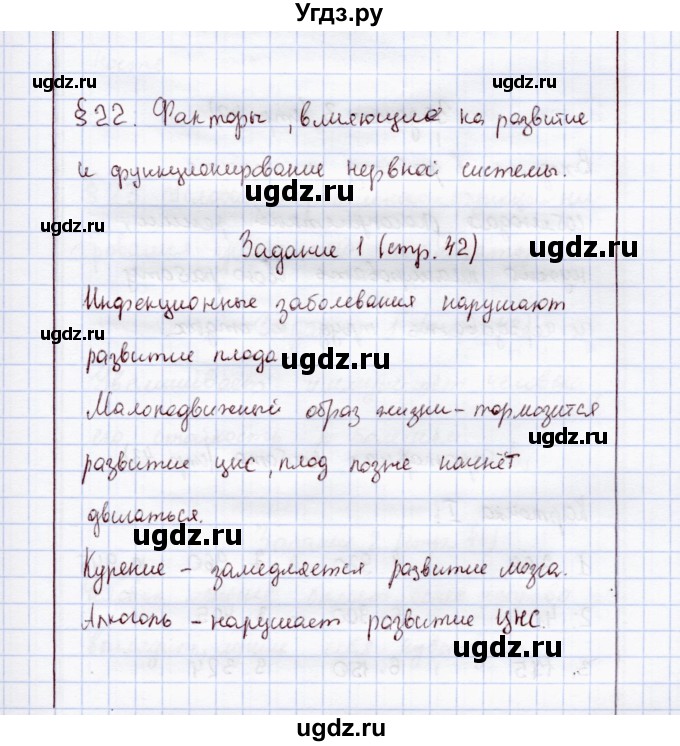 Угдз.ру
ugdz.ru ugdz.ru
§ 22. Факторы, влияющие на развитие
и функционирование нервной системы.
ugdz.ru
ugdz.ru ugdz.ru
Задание 1 (стр. 42)
Инфекционные заболевания нарушают
ugdz.ru
развитие плода ugdz.ru
Малоподвижный образ жизни - тормозится
ugdz.ru
развитие цнс, плод позже начнёт
двигаться.
ugdz.ru
Курение - замедляется развитие мозга.
Алкоголь - нарушает развитие ЦНС.
ugdz.ru
ugdz.ru